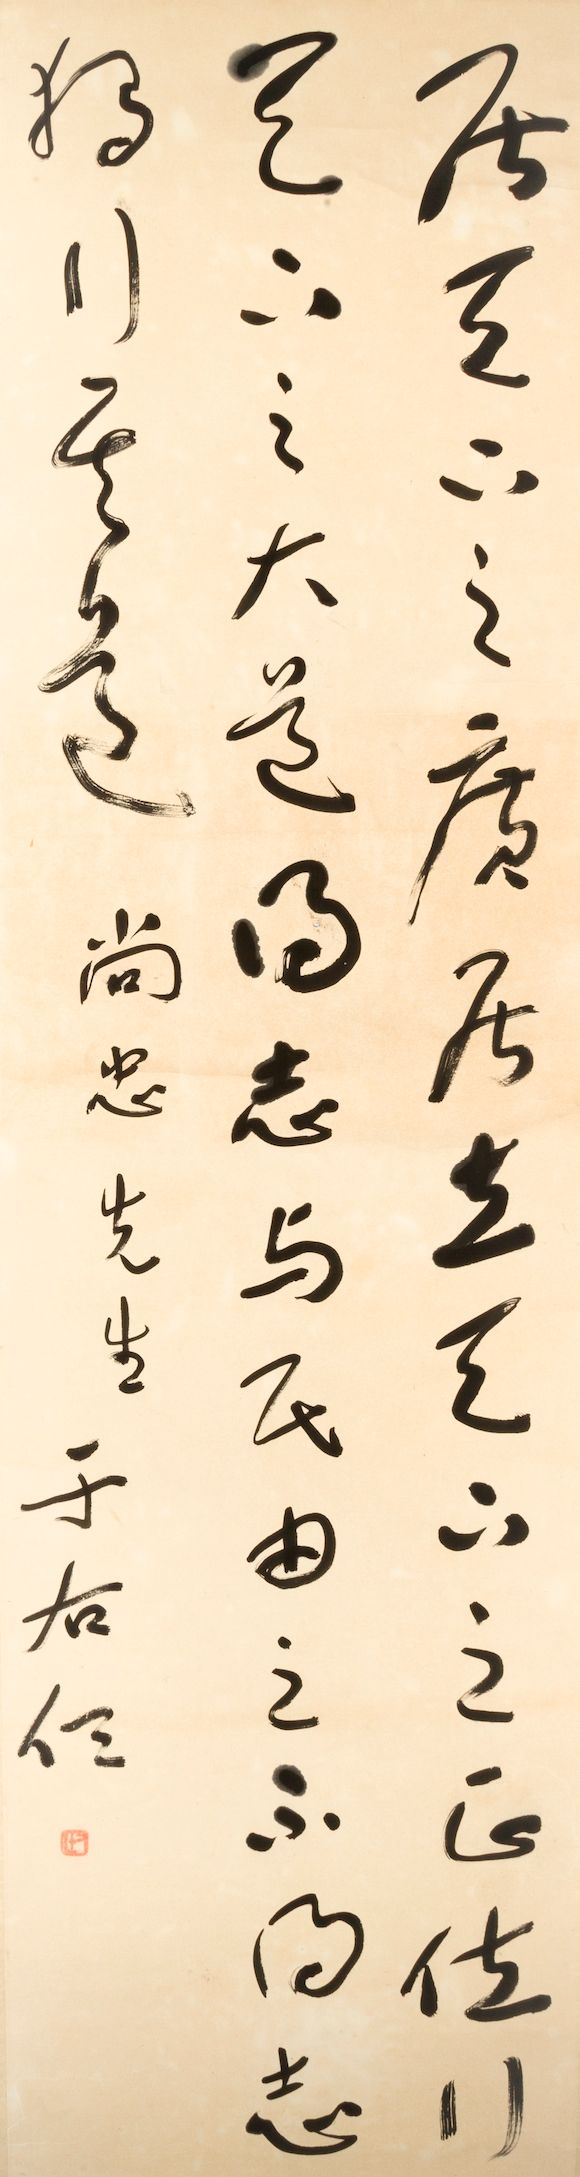 居天下之廣居立天下之正位行
天下之大道得志與民由之不得志
獨行其道
尚忠先生
于右任